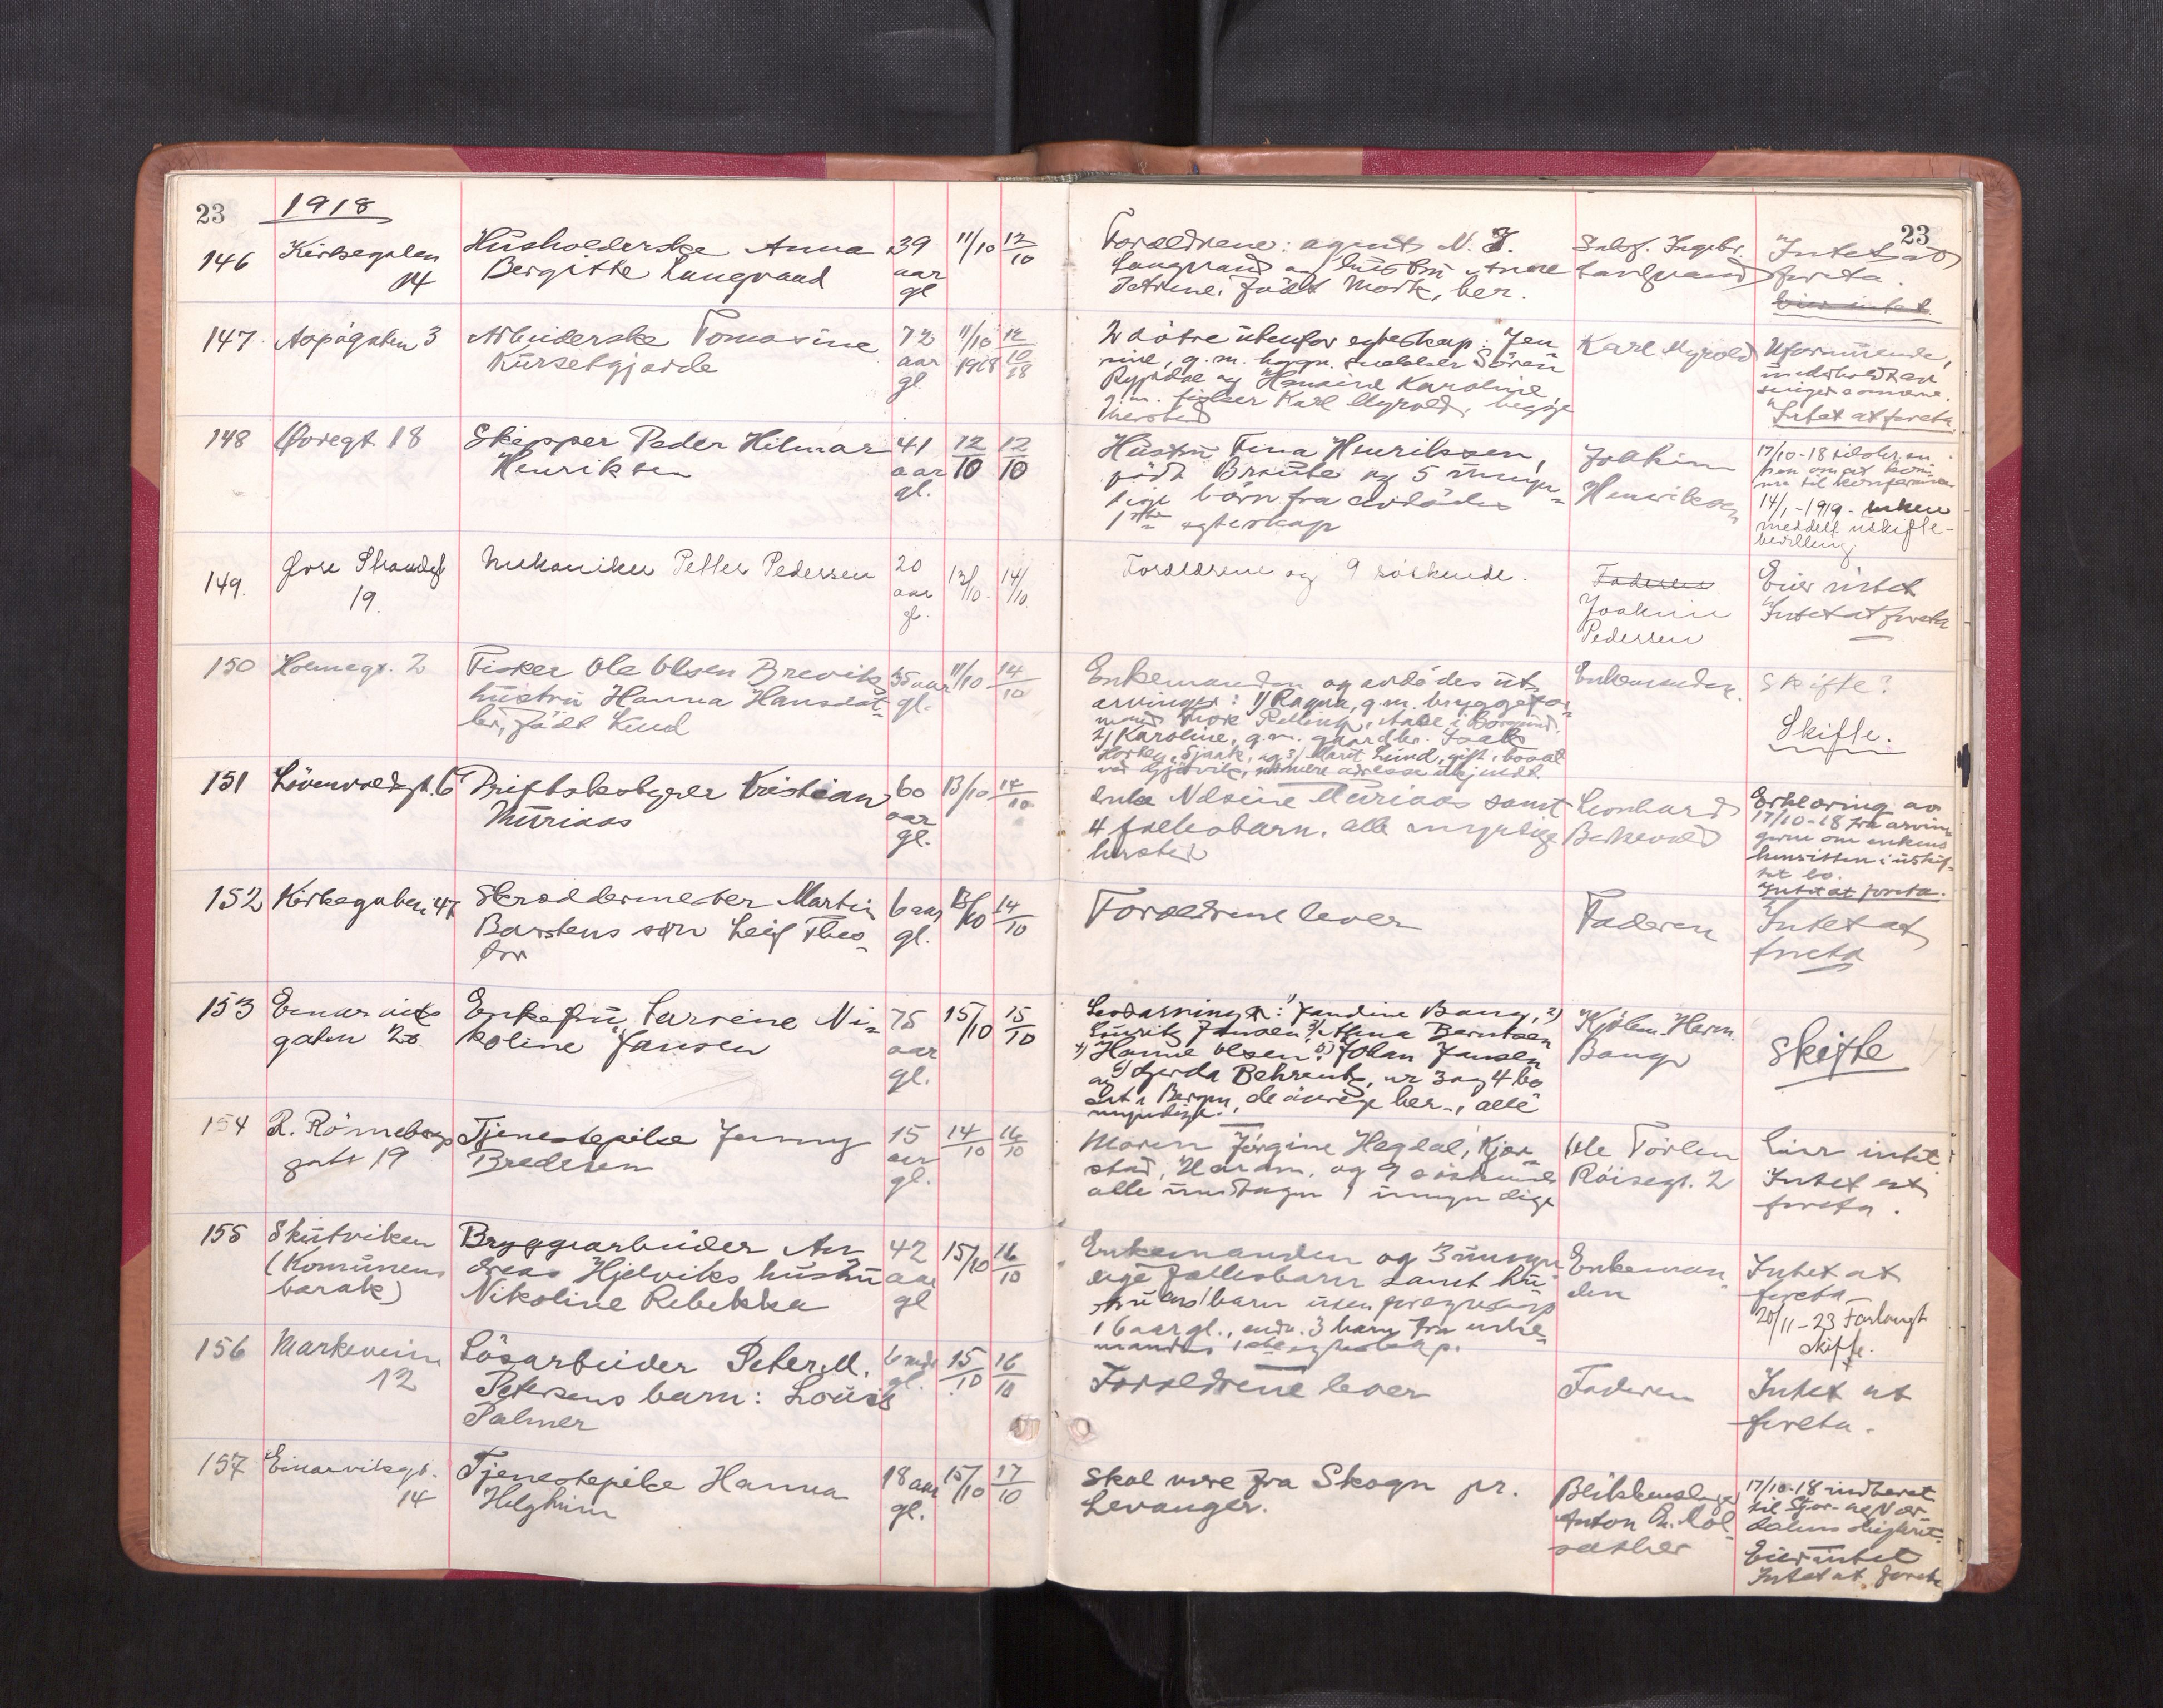 23
1918
23
146 Kirkegaten Husholderske Anna 39 11/10 12/10 Forældrene: agent N. J. Ingebr. Intet at
14 Bergitte Langvand aar Langvand og hustru Anne Langvand foreta.
gl Petrine, født Mork, her. Eier intet
147. Aspøgaten 3 Arbeiderske Tomasine 72 11/10 12/10 2 døtre utenfor egteskap: Jen Karl Myrold Uformuende,
Kursetgjærde aar 1918 18 sine, g.m. Søren underholdt av
gl Rypdal og Karoline,
g.m. fisker Karl Myrold, begge "Intet at foreta.
hersted
148 Øvregt. 18 Skipper Peder Hilmar 41 12/10 12/10 Hustru Tina Henriksen, Joakim 17/10-18 en
Henriksen aar født Braute og 5 umyn= Henriksen ken om at kom
gl. dige børn fra avdødes me til konferanse
1ste egteskap 14/1-1919- enken
meddelt uskifte-
bevilling
149. Øvre Strandgt Mekaniker Petter Pedersen 20 13/10. 14/10. Forældrene og 9 søskende. Faderen Eier intet
19. aar Joakim "Intet at foreta
gl. Pedersen
150 Holmegt. 2 Fisker Ole Olsen Breviks 35 aar 11/10 14/10 Enkemanden og avdødes ut= Enkemanden. Skifte?
hustru Hanna Hansdat= gl. arvinger: 1) Ragna, g.m. bryggefor=
ter, født Lund mand i Borgund, Skifte.
2) Karoline, g.m. gaardbr. Isak
og 3) Marit Lund, gift, bosat
ved Gjøvik, nærmere adresse ukjendt.
151 Løvenvoldgt. 6 Driftsbestyrer Kristian 60 13/10 14/10 Enke Nelsine Muriaas samt Leonhard Erklæring av
Muriaas aar 4 fællesbarn, alle myndige Bekkevold 17/10-18 fra arvin=
gl. hersted gerne om enkens
hensitten i uskif=
tet bo.
"Intet at foreta.
152 Kirkegaten 47 Skræddermester Martin 6 aar 13/10 14/10 Forældrene lever Faderen Intet at
Barstens søn Leif Theo= gl. foreta
dor
153 Einarviks Enkefru Larsine Ni= 75 15/10 15/10 Livsarvinger: 1) Jandine Bang, 2) Herm. Skifte
gaten 20 koline Jansen aar Lauritz Jansen 3) Alma Berntsen Bang
gl. 4) Hanne Olsen. 5) Johan Jansen
og 6) Gerda Behrentz, nr 3 og 4 bo
sat i Bergen, de øvrige her, alle
myndige.
154 R. Rønnebergs Tjenestepike Jenny 15 14/10 16/10 Moren Jørgine Hegdal, Kjær= Ole Eier intet
gate 19 Bredesen aar stad, Haram, og 9 søskende Røisegt. 2 Intet at
gl. alle undtagen 1 umyndige foreta.
155 Skutviken Bryggearbeider An 42 15/10 16/10 Enkemanden og 3 umyn Enkeman= Intet at
(Komunens dreas Hjelviks hustru aar dige fællesbarn samt hu= den foreta
barak) Nikoline Rebekka gl struens barn uten for egteskap 20/11-23 Forlangt
16 aar gl., endv. 3 barn fra enke= skifte.
mandens 1ste egteskap.
156 Markeveien Løsarbeider Peter M. 6 mdr 15/10 16/10 Forældrene lever Faderen Intet at
12 Petersens barn: Louis gl. foreta.
Palmer
157 Einarviksgt. Tjenestepike Hanna 18 aar 15/10 17/10 Skal være fra Skogn pr. Blikkenslager 17/10-18 indberet
14 gl. Levanger. Anton til Stjør- og Vær=
dalens skifteret.
Eier intet
Intet at foreta